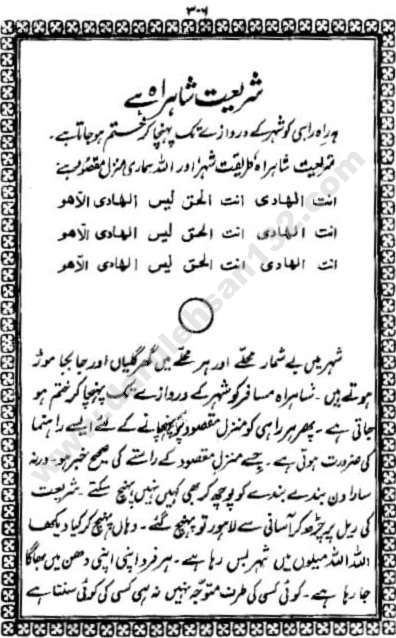 ۳۰۶
شریعت شاہراہ ہے
ہر راہ راہی کو شہر کے دروازے تک پہنچا کر ختم ہو جاتا ہے۔
شریعت شاہراہ، طریقت شہر اور اللہ ہماری منزل مقصود ہے
انت الهادی انت الحق لیس الهادی الاهو
انت الهادی انت الحق لیس الهادی الاهو
انت الهادی انت الحق لیس الهادی الاهو
شہر میں بے شمار محلّے اور ہر محلّے میں گھر گلیاں اور جا بجا موڑ
ہوتے ہیں۔ شاہراہ مسافر کو شہر کے دروازے تک پہنچا کر ختم ہو
جاتی ہے۔ پھر ہر راہی کو منزل مقصود پر پہنچانے کے لئے ایسے راہنما
کی ضرورت ہوتی ہے۔ جسے منزل مقصود کے راستے کی صحیح خبر ہو۔ ورنہ
سارا دن بندے بندے کو پوچھ کر بھی کہیں نہیں پہنچ سکتے۔ شریعت
کی ریل پر چڑھ کر آسانی سے لاہور تو پہنچ گئے۔ وہاں پہنچ کر کیا دیکھا
اللہ اللہ میلوں میں شہر بس رہا ہے۔ ہر فرد اپنی اپنی دھن میں بھاگا
جا رہا ہے۔ کوئی کسی کی طرف متوجّہ نہیں نہ ہی کسی کی کوئی سنتا ہے